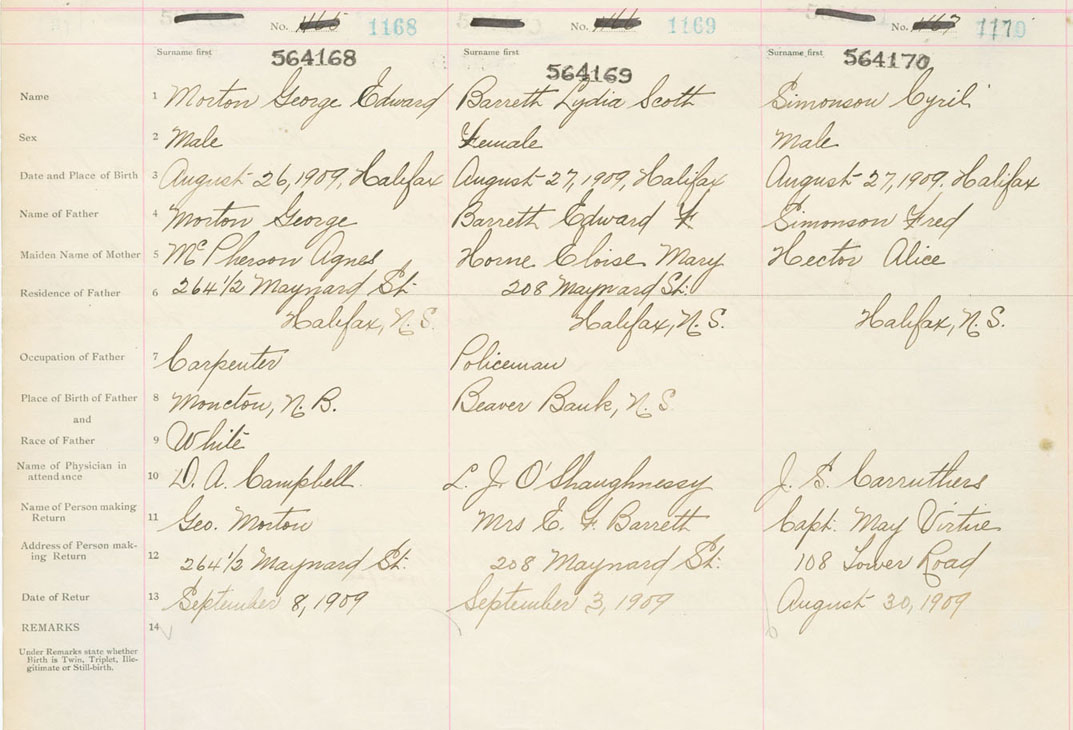 No. 1165 1168 No. 1166 1169 No. 1167 1170
Surname first 564168 Surname first 564169 Surname first 564170
Name 1 Morton George Edward Barrett Lydia Scott Simonson Cyril
Sex 2 Male Female Male
Date and Place of Birth 3 August 26, 1909, Halifax August 27, 1909, Halifax August 27, 1909. Halifax
Name of Father 4 Morton George Barrett Edward F Simonson Fred
Maiden Name of Mother 5 McPherson Agnes Horne Eloise Mary Hector Alice
Residence of Father 6 264 1/2 Maynard St. 208 Maynard St.
Halifax, N.S. Halifax, N.S. Halifax, N.S.
Occupation of Father 7 Carpenter Policeman
Place of Birth of Father 8 Moncton, N.B. Beaver Bank, N.S.
and
Race of Father 9 White
Name of Physician in
attendance 10 D. A. Campbell. L. J. O'Shaughnessy J. S. Carruthers
Name of Person making
Return 11 Geo. Morton Mrs E. F. Barrett Capt. May Virtue
Address of Person mak-
ing Return 12 264 1/2 Maynard St. 208 Maynard St. 108 Tower Road
Date of Retur 13 September 8, 1909 September 3, 1909 August 30, 1909
REMARKS 14
Under Remarks state whether
Birth is Twin, Triplet, Ille-
gitimate or Still-birth.